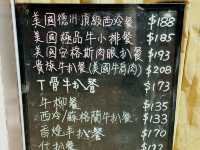 美國德州頂級西冷餐 $188
美國極品牛小排餐 $185
美國安格斯肉眼扒餐 $193
貴族牛扒餐(美國牛肩肉) $208
T骨牛扒餐 $173
牛柳餐 $135
西冷/蘇格蘭牛扒餐 $133
羊扒餐 $170
什扒餐